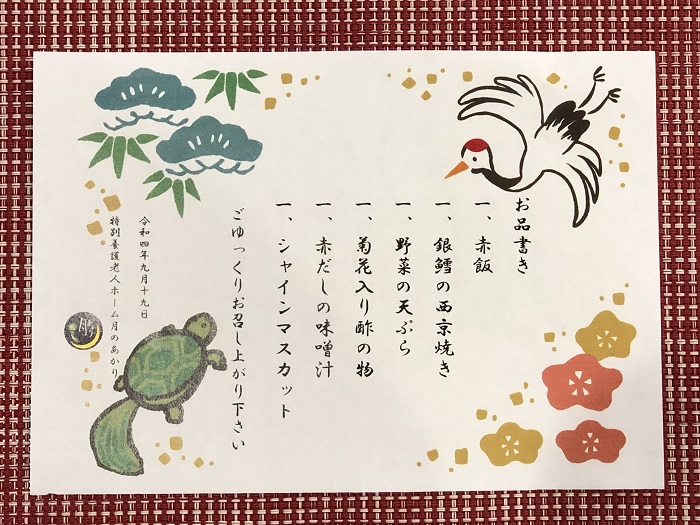 お品書き
一、赤飯
一、銀鱈の西京焼き
一、野菜の天ぷら
一、菊花入り酢の物
一、赤だしの味噌汁
一、シャインマスカット
ごゆっくりお召し上がり下さい
令和四年九月十九日
特別養護老人ホーム月のあかり